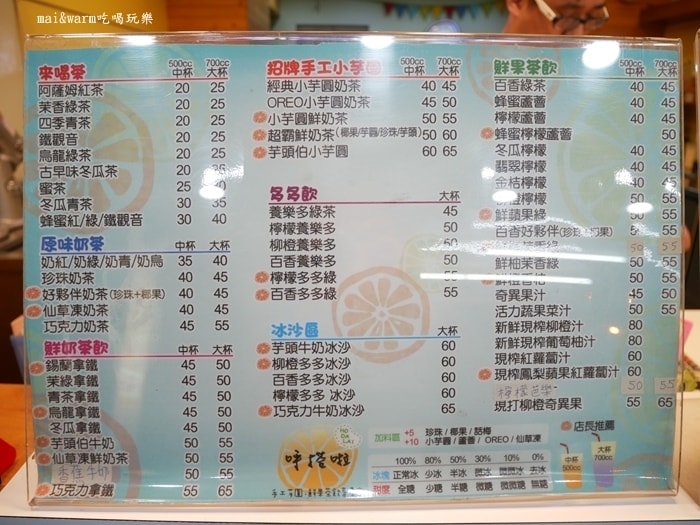 mai&warm吃喝玩樂
來喝茶 500cc中杯 700cc大杯
阿薩姆紅茶 20 25
茉香綠茶 20 25
四季青茶 20 25
鐵觀音 20 25
烏龍綠茶 20 25
古早味冬瓜茶 20
蜜茶 25
冬瓜青茶 30 35
蜂蜜紅/綠/鐵觀音 30 40
原味奶茶 中杯 大杯
奶紅/奶綠/奶青/奶烏 35 40
珍珠奶茶 40 45
好夥伴奶茶(珍珠+椰果) 40 45
仙草凍奶茶 40 45
巧克力奶茶 45 55
鮮奶茶飲 中杯 大杯
錫蘭拿鐵 45 50
茉綠拿鐵 45 50
青茶拿鐵 45 50
烏龍拿鐵 45 50
冬瓜拿鐵 45 50
芋頭伯牛奶 50 55
仙草凍鮮奶茶 50 55
牛奶 50 55
巧克力拿鐵 55 65
招牌手工小芋圓 500cc中杯 700cc大杯
經典小芋圓奶茶 40 45
OREO小芋圓奶茶 45 50
小芋圓鮮奶茶 50 55
超霸鮮奶茶(椰果/芋圓/珍珠/芋頭) 50 60
芋頭伯小芋圓 60 65
多多飲 大杯
養樂多綠茶 45
檸檬養樂多 50
柳橙養樂多 50
百香養樂多 50
檸檬多多綠 55
百香多多綠 55
冰沙區 大杯
芋頭牛奶冰沙 60
柳橙多多冰沙 60
百香多多冰沙 60
檸檬多多 冰沙 60
巧克力牛奶冰沙 65
呼橙啦
手工芋圓‧鮮果茶飲
加料區 +5 珍珠/椰果/話梅
+10 小芋圓/蘆薈/OREO/仙草凍
100% 80% 50% 30% 10% 0%
冰塊 正常冰 少冰 半冰 微冰 微微冰 去冰
甜度 全糖 少糖 半糖 微糖 微微糖 無糖
鮮果茶飲 500cc中杯 700cc大杯
百香綠茶 40 45
蜂蜜蘆薈 40 45
檸檬蘆薈 40 45
蜂蜜檸檬蘆薈 50
冬瓜檸檬 40 45
翡翠檸檬 40 45
金桔檸檬 40 45
檸檬 40 45
鮮蘋果綠 45 50
百香好夥伴(珍珠+椰果) 45 50
50 55
鮮柚茉香綠 45 55
鮮檸 45 55
奇異果汁 45 55
活力蔬果菜汁 50 55
新鮮現榨柳橙汁 80
新鮮現榨葡萄柚汁 80
現榨紅蘿蔔汁 60
現榨鳳梨蘋果紅蘿蔔汁 60
檸檬芭樂 50 55
現打柳橙奇異果 55 65
店長推薦
中杯500cc
大杯700cc